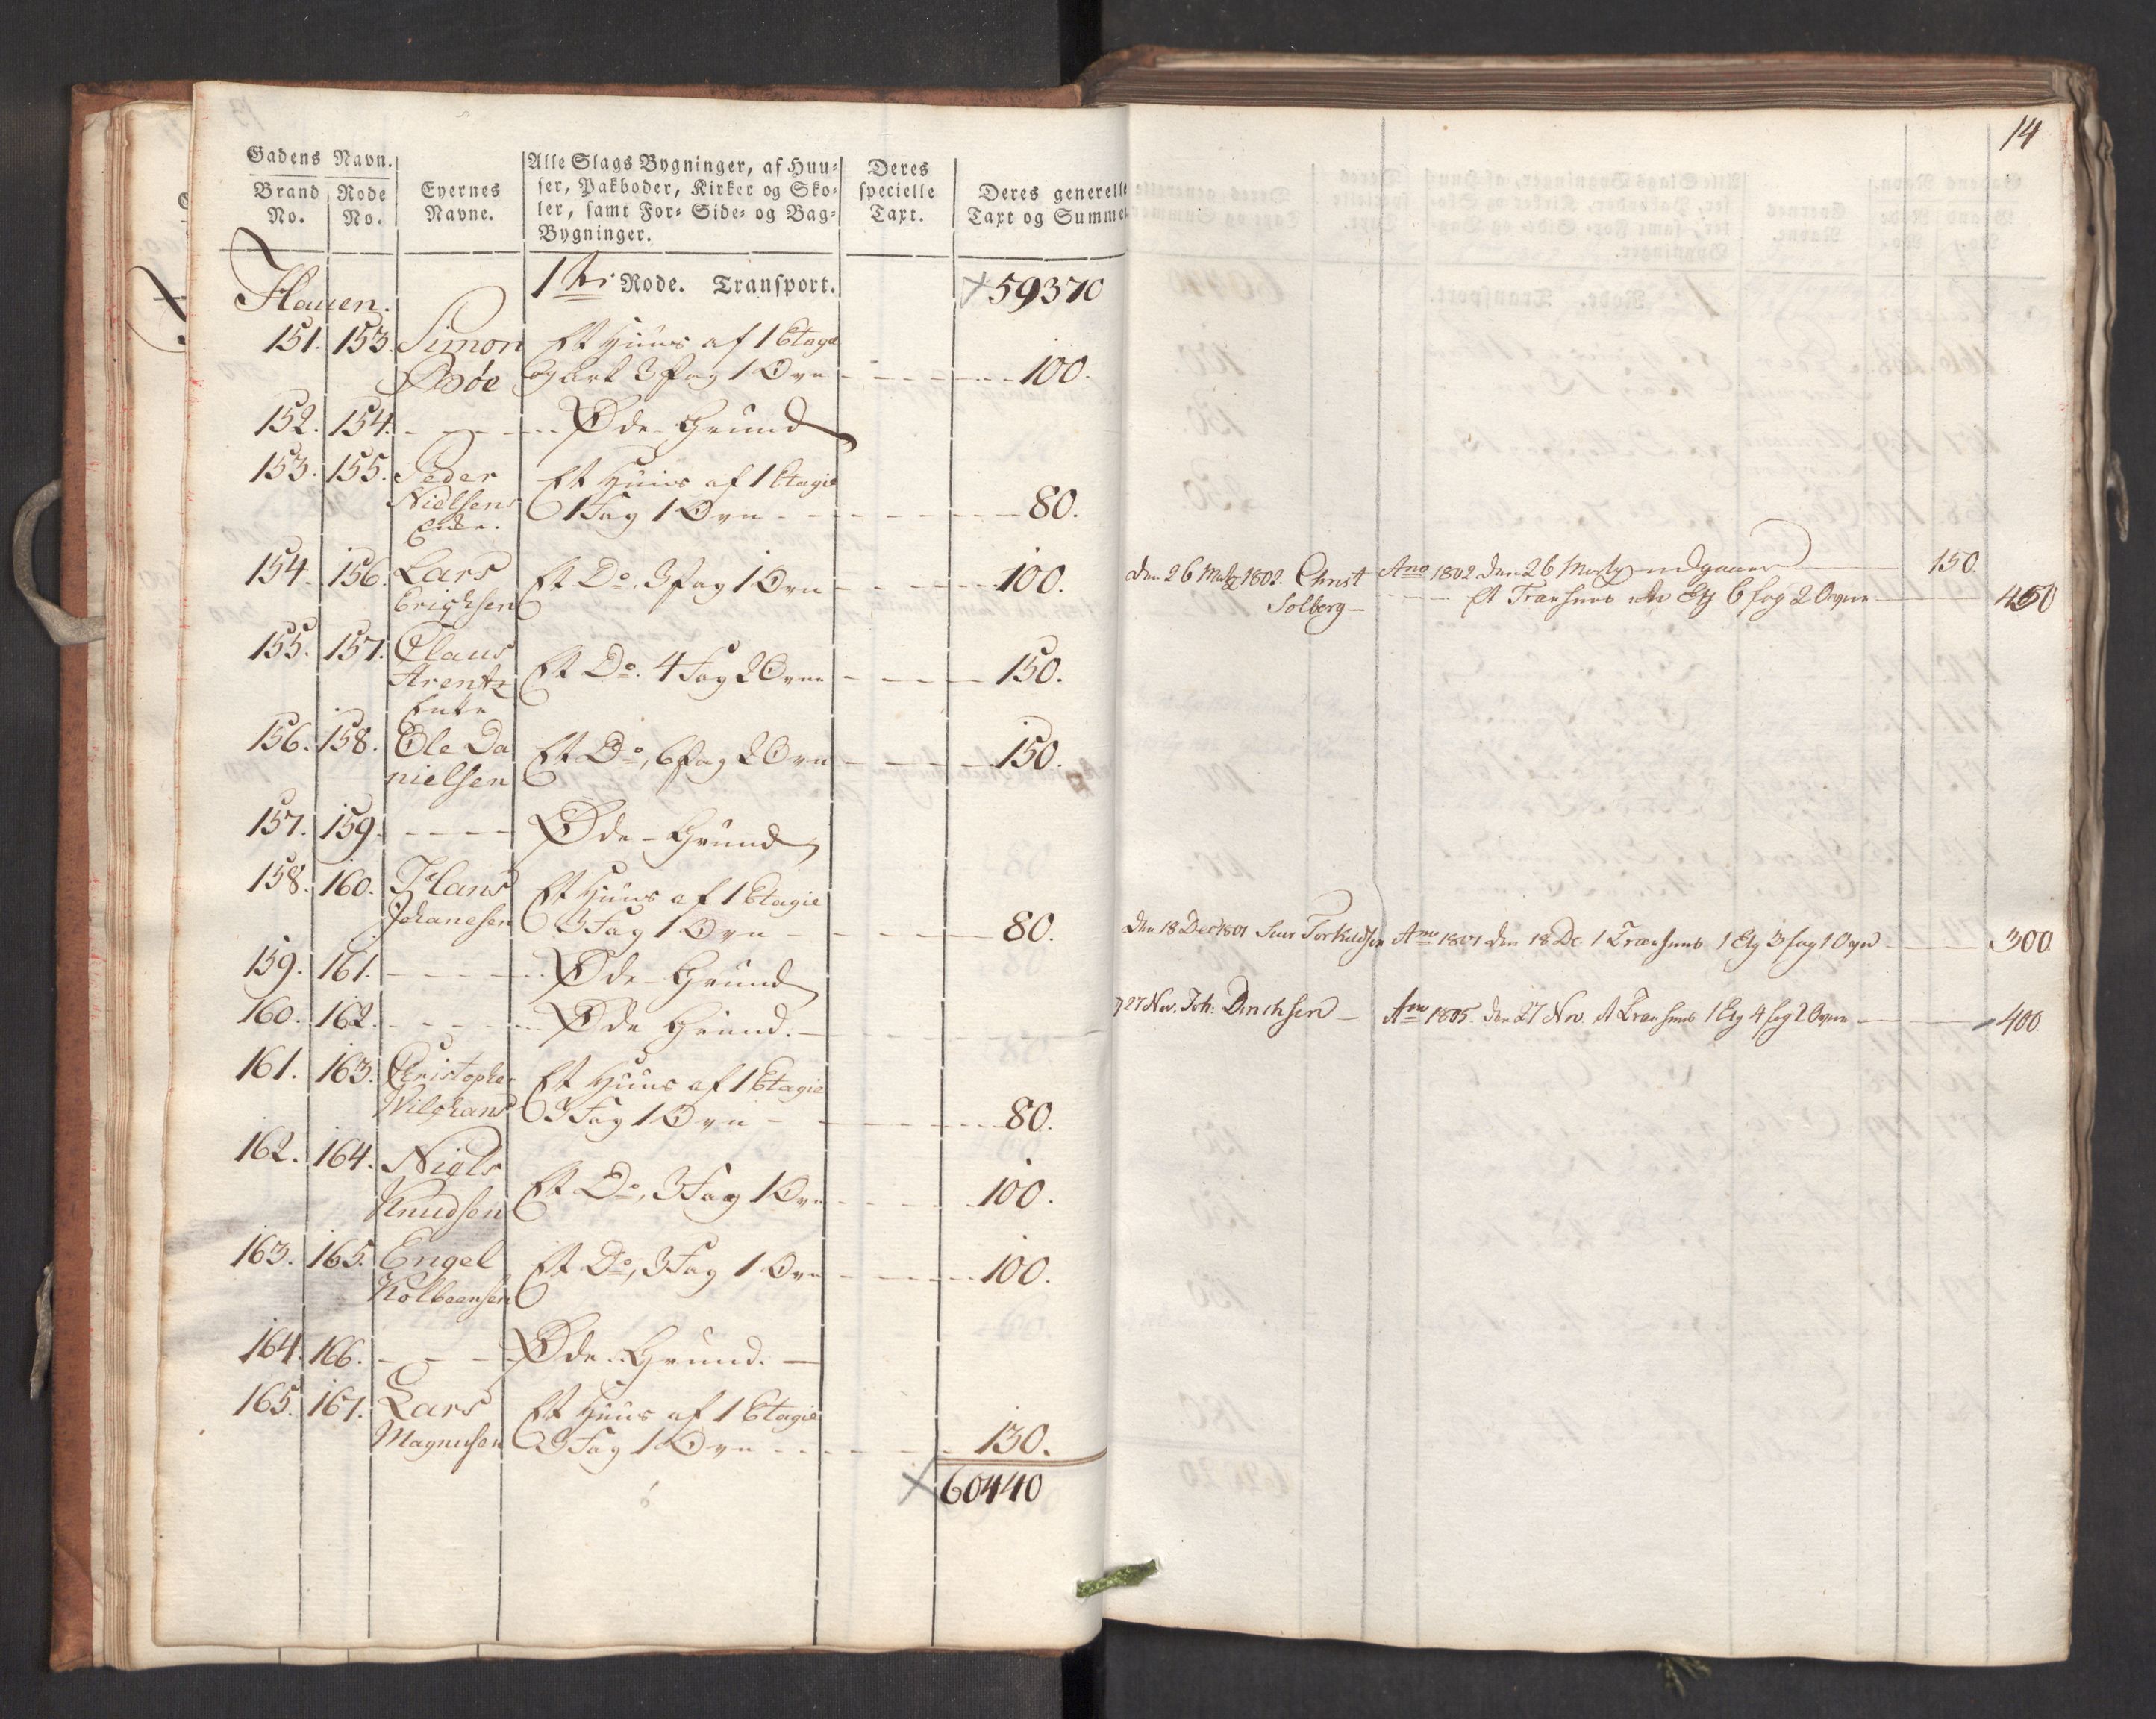 Gadens Navn.
Brand No.
Rode No.
Eyernes Navne.
Alle Slags Bygninger, af Huu-
ser, Pakboder, Kirker og Sko-
ler, samt For- Side- og Bag-
Bygninger.
Deres specielle Taxt.
Deres generelle
Taxt og Summe
1ste Rode. Transport. 59370
Hauen.
151. 153. Simon Et Huus af 1 Etage
Bøe og Ark 3 Fag 1 Ovn 100.
152. 154. Øde Grund
153. 155. Peder Et Huus af 1 Etagie
Nielsens 1 Fag 1 Ovn 80.
Enke.
154. 156. Lars Et Do. 3 Fag 1 Ovn 100.
Erichsen
155. 157. Claus
Arentz Et Do. 4 Fag 2 Ovne 150.
Enke
156. 158. Ole Da
nielsen Et Do, 6 Fag 2 Ovn 150.
157. 159. Øde Grund
158. 160. Hans Et Huus af 1 Etagie
Johanesen 3 Fag 1 Ovn 80.
159. 161. Øde Grund
160. 162. Øde Grund.
161. 163. Christopher Et Huus af 1 Etagie
3 Fag 1 Ovn 80.
162. 164. Niels
Knudsen Et Do, 3 Fag 1 Ovn 100.
163. 165. Engel Et Do, 3 Fag 1 Ovn 100.
Kolbeensen
164. 166. Øde Grund.
165. 167. Lars Et Huus af 1 Etagie
Magnusen 3 Fag 1 Ovn 130.
60440
14
den 26 1802. Christ Ano 1802 den 26 udgaaer 150.
Solberg Et Træhuus 6 fag 2 Ovne 450
den 18 Dec 1801 Torkildsen Ano 1801 den 18 De 1 Træhuus 1 Etg 3 fag 1 Ovn 300
27 Nov. Joh: Dirichsen Ano 1805. den 27 Nov. et Træhuus 1 Etg 4 fag 2 Ovne 400